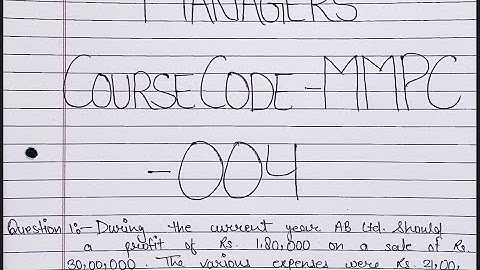 MANAGERS
COURSE CODE - MMPC
- 004
Question 1:- During the current year AB Ltd. Should
a profit of Rs. 1,80,000 on a sale of Rs.
30,00,000. The various expenses were Rs. 21,00,